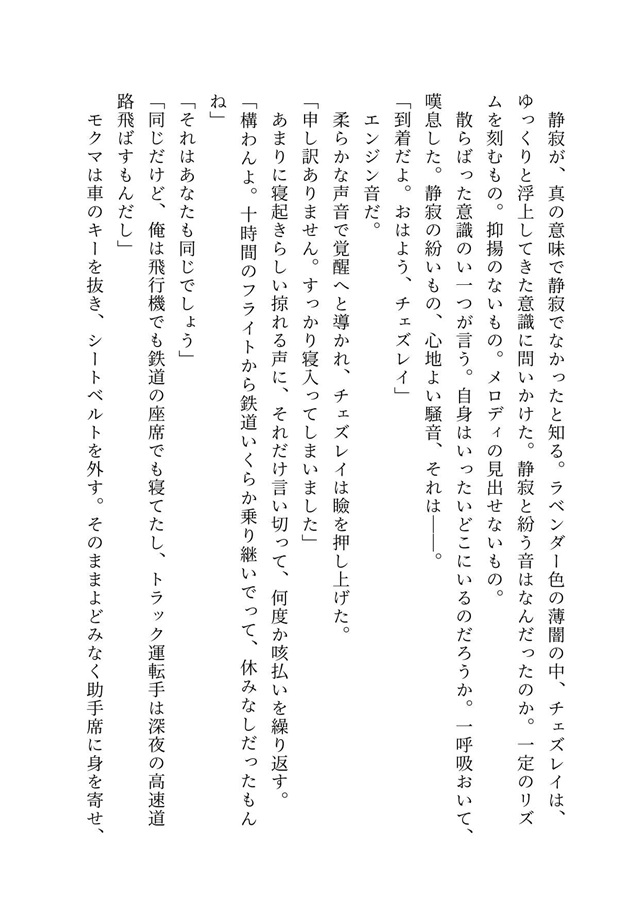 静寂が、真の意味で静寂でなかったと知る。ラベンダー色の薄闇の中、チェズレイは、
ゆっくりと浮上してきた意識に問いかけた。静寂と紛う音はなんだったのか。一定のリズ
ムを刻むもの。抑揚のないもの。メロディの見出せないもの。
　散らばった意識のい一つが言う。自身はいったいどこにいるのだろうか。一呼吸おいて、
嘆息した。静寂の紛いもの、心地よい騒音、それは――。
「到着だよ。おはよう、チェズレイ」
　エンジン音だ。
　柔らかな声音で覚醒へと導かれ、チェズレイは瞼を押し上げた。
「申し訳ありません。すっかり寝入ってしまいました」
　あまりに寝起きらしい掠れる声に、それだけ言い切って、何度か咳払いを繰り返す。
「構わんよ。十時間のフライトから鉄道いくらか乗り継いでって、休みなしだったもん
ね」
「それはあなたも同じでしょう」
「同じだけど、俺は飛行機でも鉄道の座席でも寝てたし、トラック運転手は深夜の高速道
路飛ばすもんだし」
　モクマは車のキーを抜き、シートベルトを外す。そのままよどみなく助手席に身を寄せ、